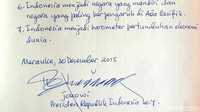 6. Indonesia menjadi negara yang mandiri dan
negara yang paling berpengaruh di Asia Pasifik.
7. Indonesia menjadi barometer pertumbuhan ekonomi
dunia.
Merauke, 30 Desember 2015
Jokowi
Presiden Republik Indonesia ke-7.